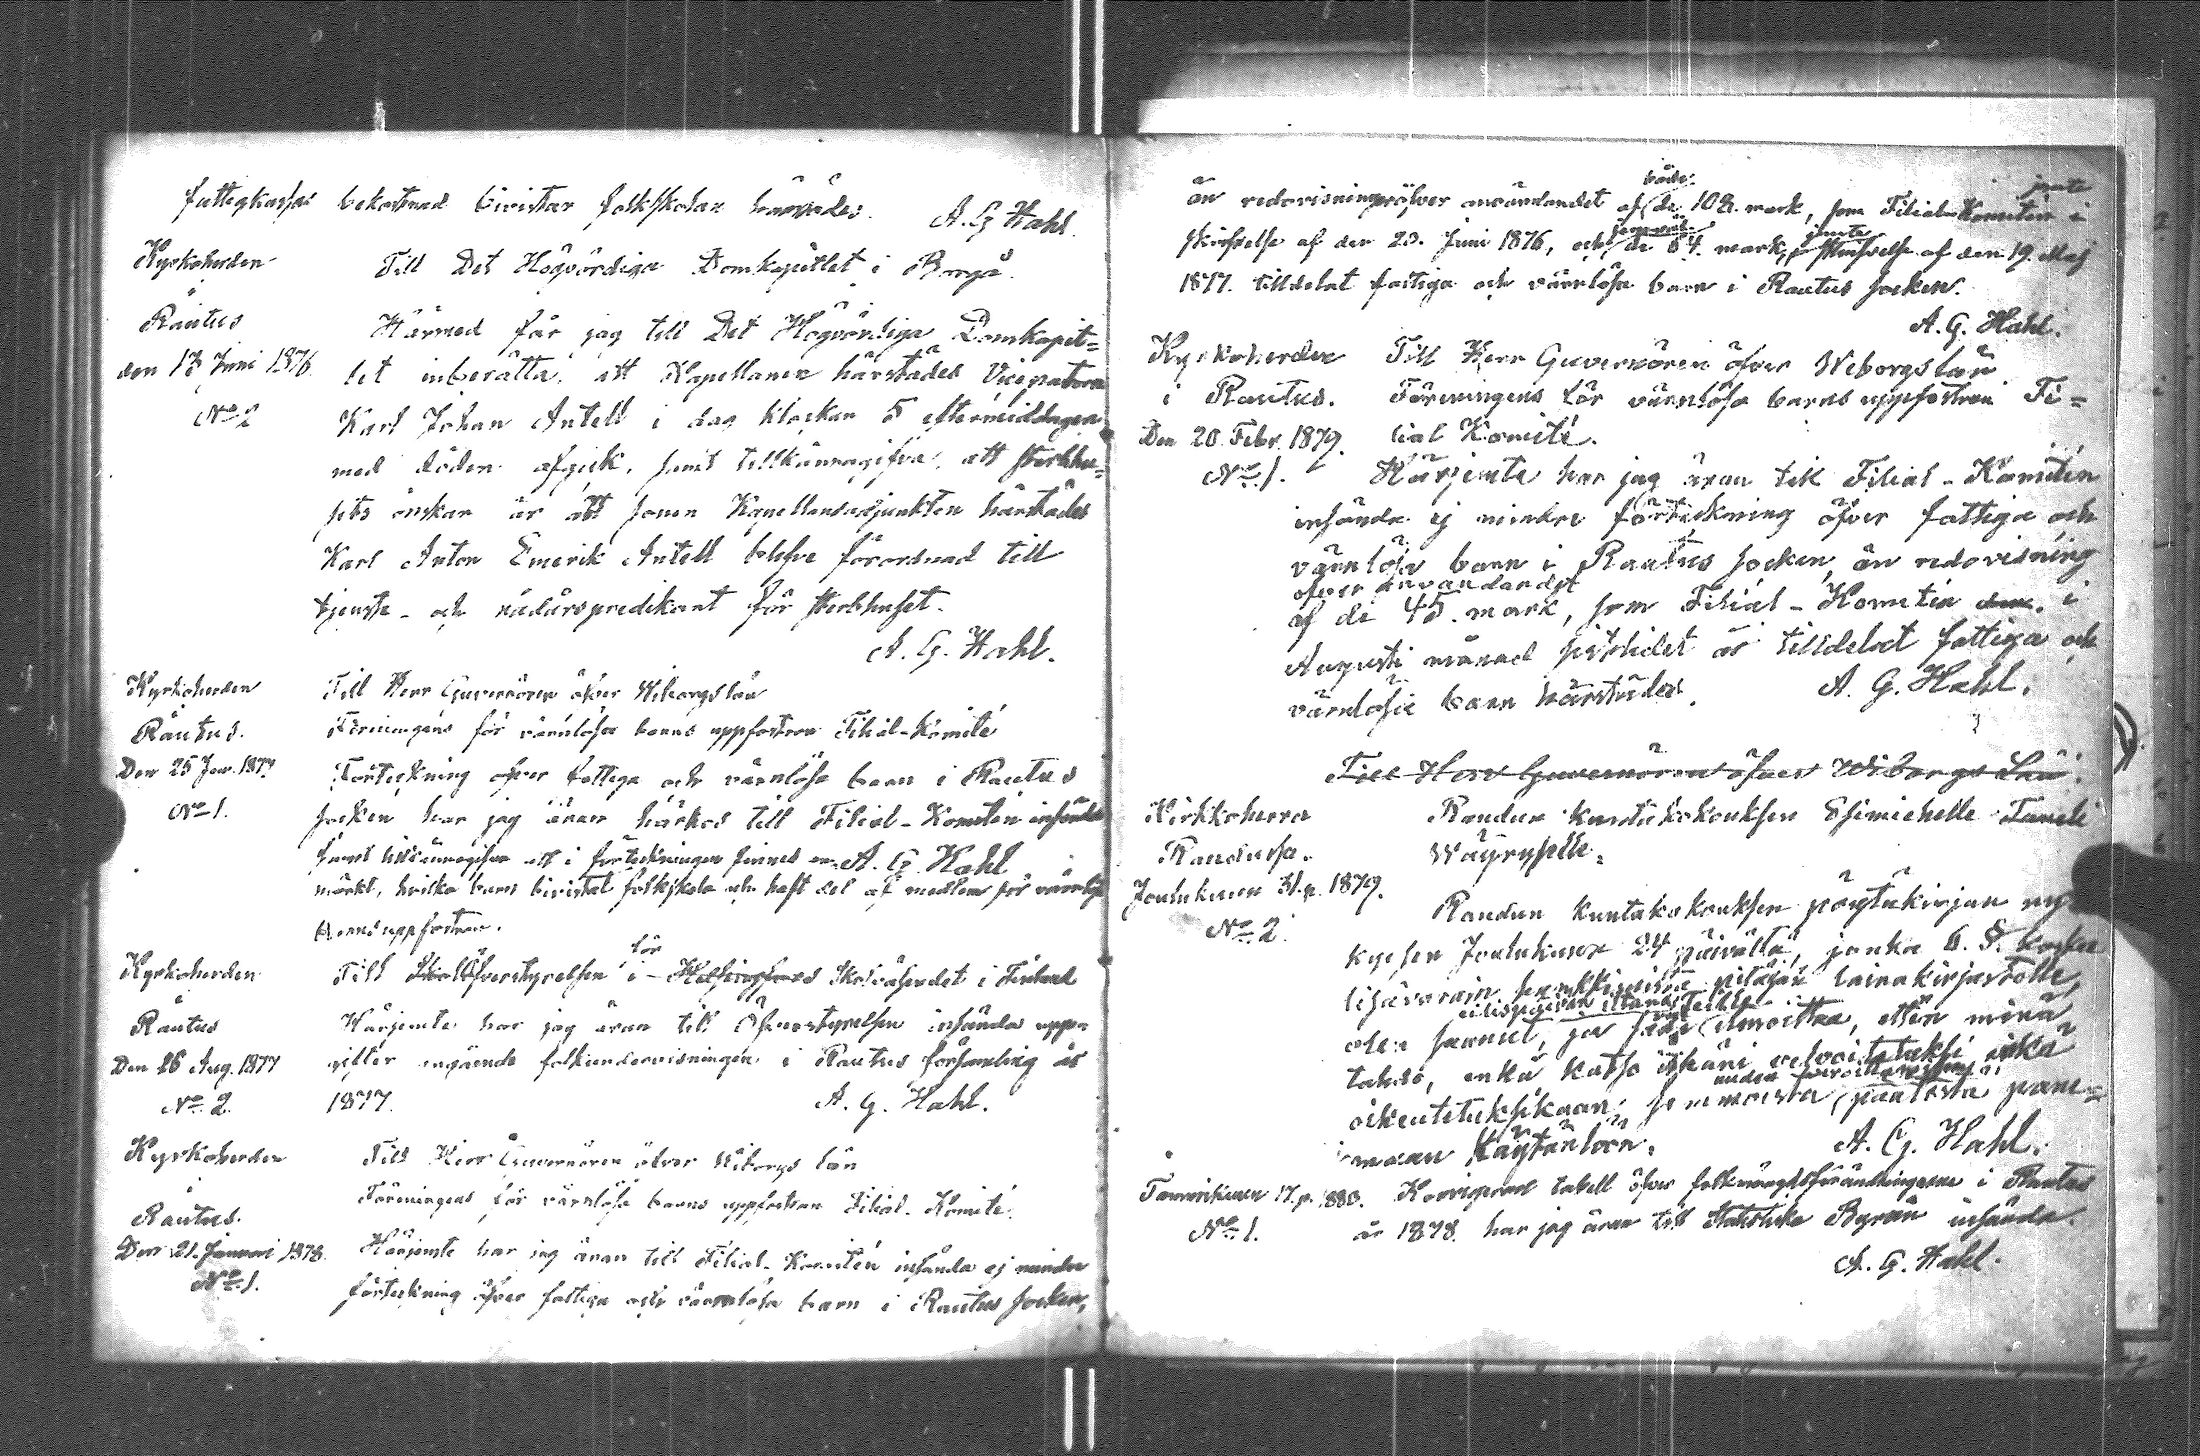 fattigkassas bekostnad bivistar folkskolan härstädes.
A. G. Hahl.
Kyrkoherden
Till Det Högvördiga Domkapitlet i Borgå.
Rautus
Härmed får jag till Det Högvördiga Domkapit=
den 13 Juni 1876.
let inberätta, att Kapellanen härstädes Vicepastorn
No 2
Karl Johan Antell i dag klockan 5 eftermiddagen
med döden afgick, samt tillkännagifva, att sterbhu=
sets önskan är att sonen Kapellansadjunkten härstädes
Karl Anton Emerik Antell blefve förordnad till
tjenste- och nådårspredikant för sterbhuset.
A. G. Hahl.
Kyrkoherden
Till Herr Guvernören öfver Wiborgs län
Rautus.
Föreningens för värnlösa barns uppfostran Filial-Komité
Den 25 Jan. 1877
Förteckning öfver fattiga och värnlösa barn i Rautus
No 1.
socken har jag äran härhos till Filial-Komitén insända
samt tillkännagifva att i förteckningen finnes an-
A. G. Hahl
märkt, hvilka barn bivistat folkskola och haft del af medlen för värnlösa
barns uppfostran.
Kyrkoherden
för
Till Skolöfverstyrelsen i Helsingfors Skolväsendet i Finland
Rautus
Härjemte har jag äran till Öfverstyrelsen insända upp-
Den 26 Aug. 1877
gifter angående folkundervisningen i Rautus församling år
No 2.
1877.
A. G. Hahl.
Kyrkoherden
Till Herr Guvernören öfver Wiborgs län
Rautus.
Föreningens för värnlösa barns uppfostran Filial-Komité.
Den 21. Januari 1878.
Härjemte har jag äran till Filial-Komitén insända ej mindre
No 1.
förteckning öfver fattiga och värnlösa barn i Rautus socken,
både
jemte
än redovisning öfver användandet af de 108. mark, som Filial-Komitén i
skrifvelse af den 20. Juni 1876, och de 64. mark, skrifvelse af den 19. Maj
jemte
1877. tilldelat fattiga och värnlösa barn i Rautus socken.
A. G. Hahl.
Kyrkoherden
Till Herr Guvernören öfver Wiborgs län
i Rautus.
Föreningens för värnlösa barns uppfostran Fi=
Den 20. Febr. 1879.
lial Komité.
No 1.
Härjemte har jag äran till Filial-Komitén
insända ej mindre förteckning öfver fattiga och
värnlösa barn i Rautus socken, än redovisning
öfver användandet
af de 45. mark, som Filial-Komitén i
Augusti månad sistlidet år tilldelat fattiga och
värnlösa barn härstädes.
A. G. Hahl.
Till Herr Guvernören öfver Wiborgs Län.
Kirkkoherra
Raudun kuntakokouksen Esimiehelle Taneli
Raudussa.
Wäyryselle.
Joulukuun 31. p. 1879.
Raudun kuntakokouksen pöytäkirjan
No 2.
kyesen Joulukuun 24 päivältä, jonka 6. §. koskee
pitäjän lainakirjastolle,
olen saanut, ja saan ilmoittaa, etten minä
tahdo, enkä katso itseäni velvoitetuksi eikä
oikeutetuksikaan, semmoista päätöstä pane=
maan käytäntöön.
A. G. Hahl.
Tammikuun 17. p. 1880.
Korrigerad tabell öfver folkmängdsförändringarne i Rautus
No 1.
år 1878. har jag äran till Statistiska Byrån insända.
A. G. Hahl.